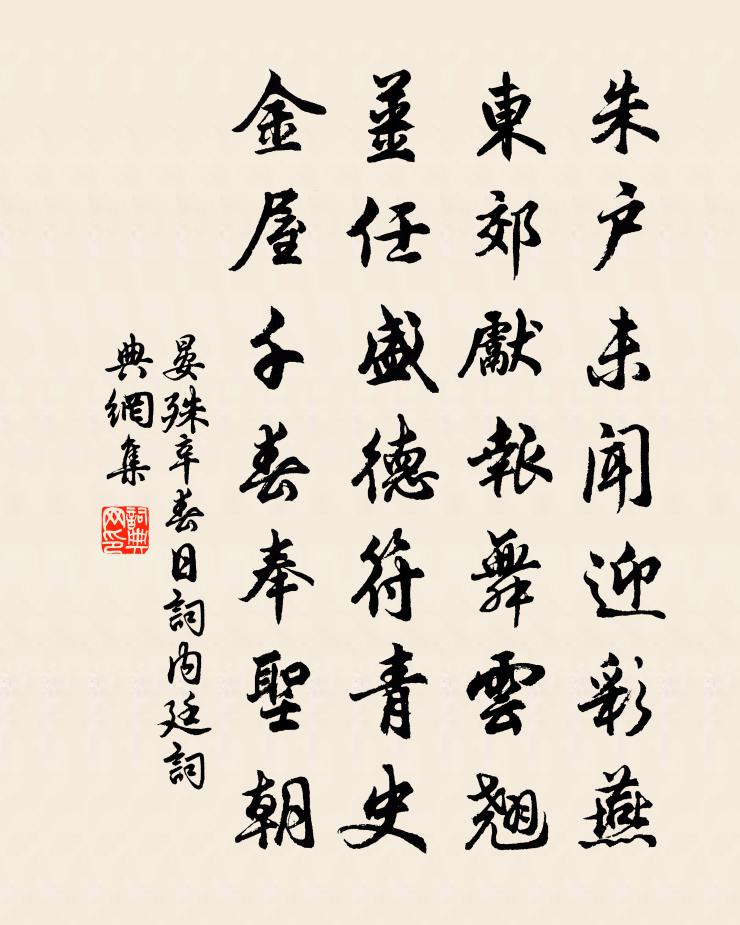 朱户未聞迎彩燕
東郊獻報舞雲翹
薑任盛德符青史
金屋千春奉聖朝
晏殊辛春日詞內廷詞
典網集
詞典
网印